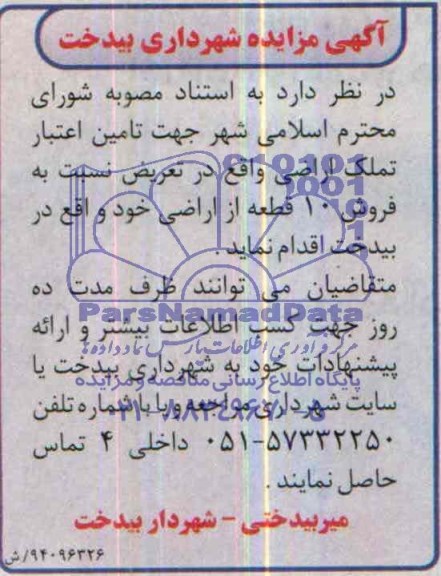 آگهی مزایده شهرداری بیدخت
در نظر دارد به استناد مصوبه شورای
محترم اسلامی شهر جهت تامین اعتبار
تملک اراضی واقع در تعریض نسبت به
فروش ۱۰ قطعه از اراضی خود واقع در
بیدخت اقدام نماید.
متقاضیان می توانند ظرف مدت ده
ParsNamadData
روز جهت کسب اطلاعات بیشتر و ارائه
مرکز فرآوری اطلاعات پارس نماد داده ها
پیشنهادات خود به شهرداری بیدخت یا
پایگاه اطلاع رسانی مناقصه و مزایده
سایت شهرداری مراجعه و یا با شماره تلفن
۰۵۱-۵۷۳۳۲۲۵۰ داخلی ۴ تماس
حاصل نمایند.
میربیدختی - شهردار بیدخت
۹۴۰۹۶۳۲۶/ش